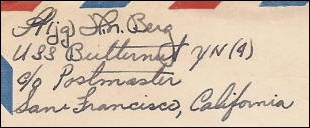 Lt(jg) H.M. Berg
USS Butternut YN(9)
c/o Postmaster
San Francisco, California